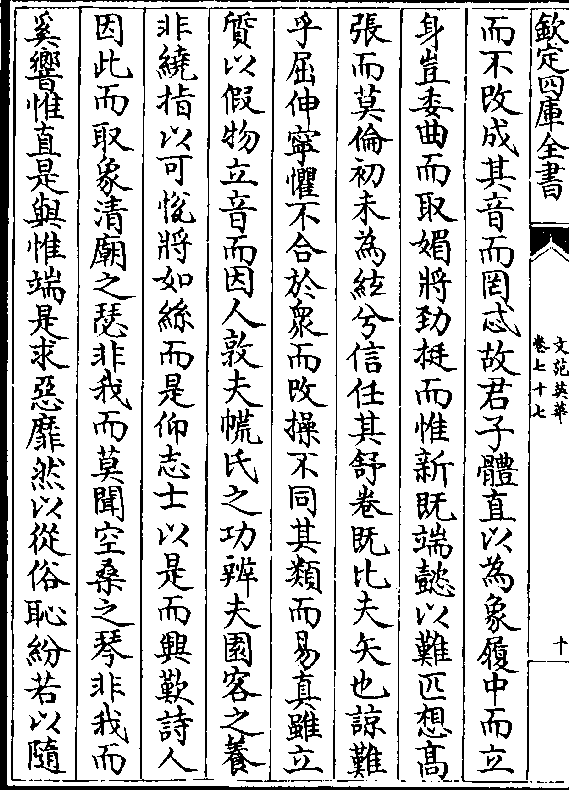 欽定四庫全書
文苑英華
卷七十七
十
而不改成其音而罔忒故君子體直以為象履中而立
身豈委曲而取媚將勁挺而惟新既端懿以難匹想髙
張而莫倫初未為絃兮信任其舒卷既比夫矢也諒難
乎屈伸寧懼不合於衆而改操不同其類而易真雖立
質以假物立音而因人敦夫㡛氏之功辨夫園客之養
非繞指以可悛將如絲而是仰志士以是而興歎詩人
因此而取象清廟之瑟非我而莫聞空桑之琴非我而
奚響惟直是與惟端是求惡靡然以從俗恥紛若以隨